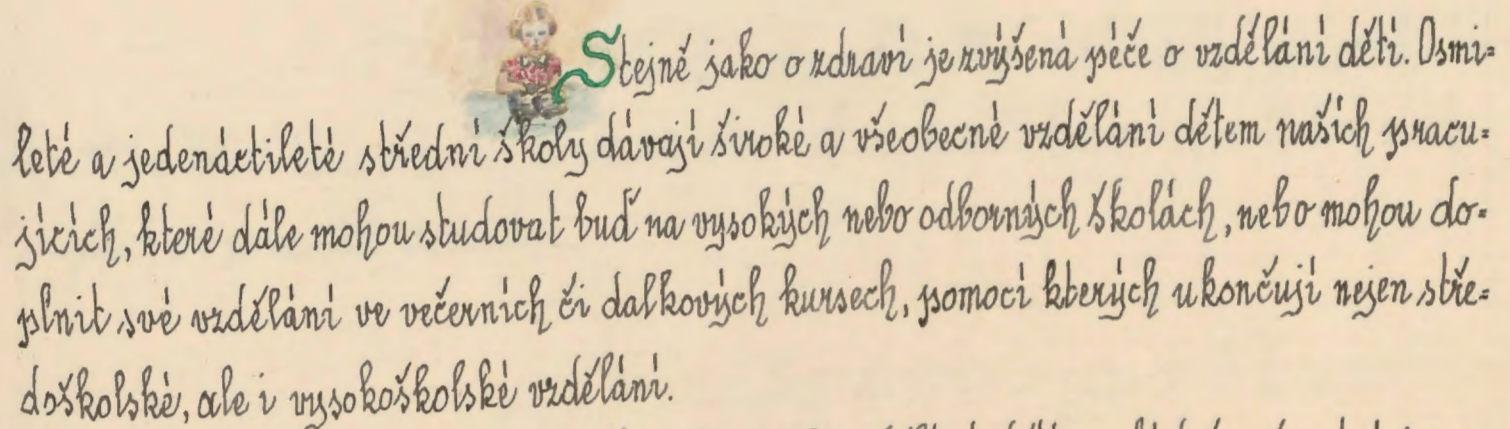 Stejně jako o zdraví je zvýšená péče o vzdělání dětí. Osmi=
leté a jedenáctileté střední školy dávají široké a všeobecné vzdělání dětem našich pracu=
jících, které dále mohou studovat buď na vysokých nebo odborných školách, nebo mohou do=
plnit své vzdělání ve večerních či dalkových kursech, pomocí kterých ukončují nejen stře=
doškolské, ale i vysokoškolské vzdělání.